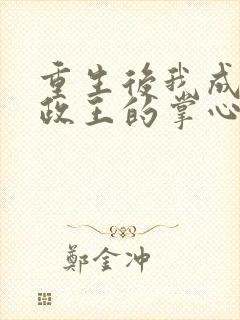 重生後我成
政王的掌心
鄭金冲